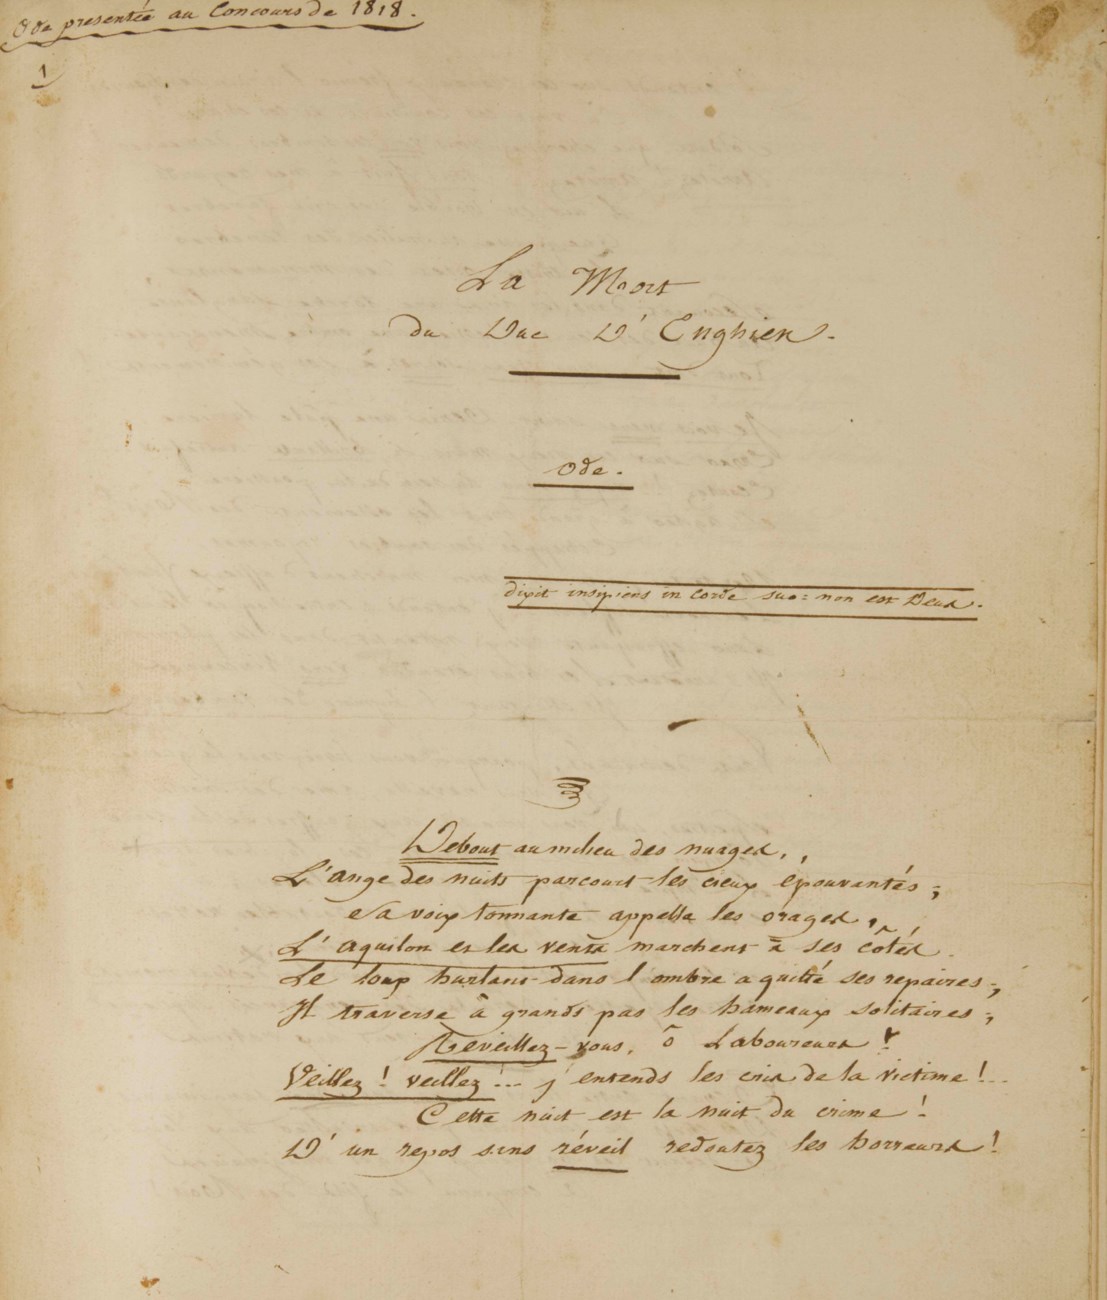 Ode presentée au Concours de 1818.
1
La Mort
du Duc D'Enghien.
Ode.
dixit insipiens in corde suo: non est Deus.
Debout au milieu des nuages,
L'ange des nuits parcourt les cieux épouvantés;
Sa voix tonnante appelle les orages,
L'aquilon et les vents marchent à ses côtés.
Le loup hurlant dans l'ombre a quitté ses repaires;
Il traverse à grands pas les hameaux solitaires;
Reveillez-vous, ô Laboureurs!
Veillez! veillez!... j'entends les cris de la victime!..
Cette nuit est la nuit du crime!
D'un repos sans réveil redoutez les horreurs!